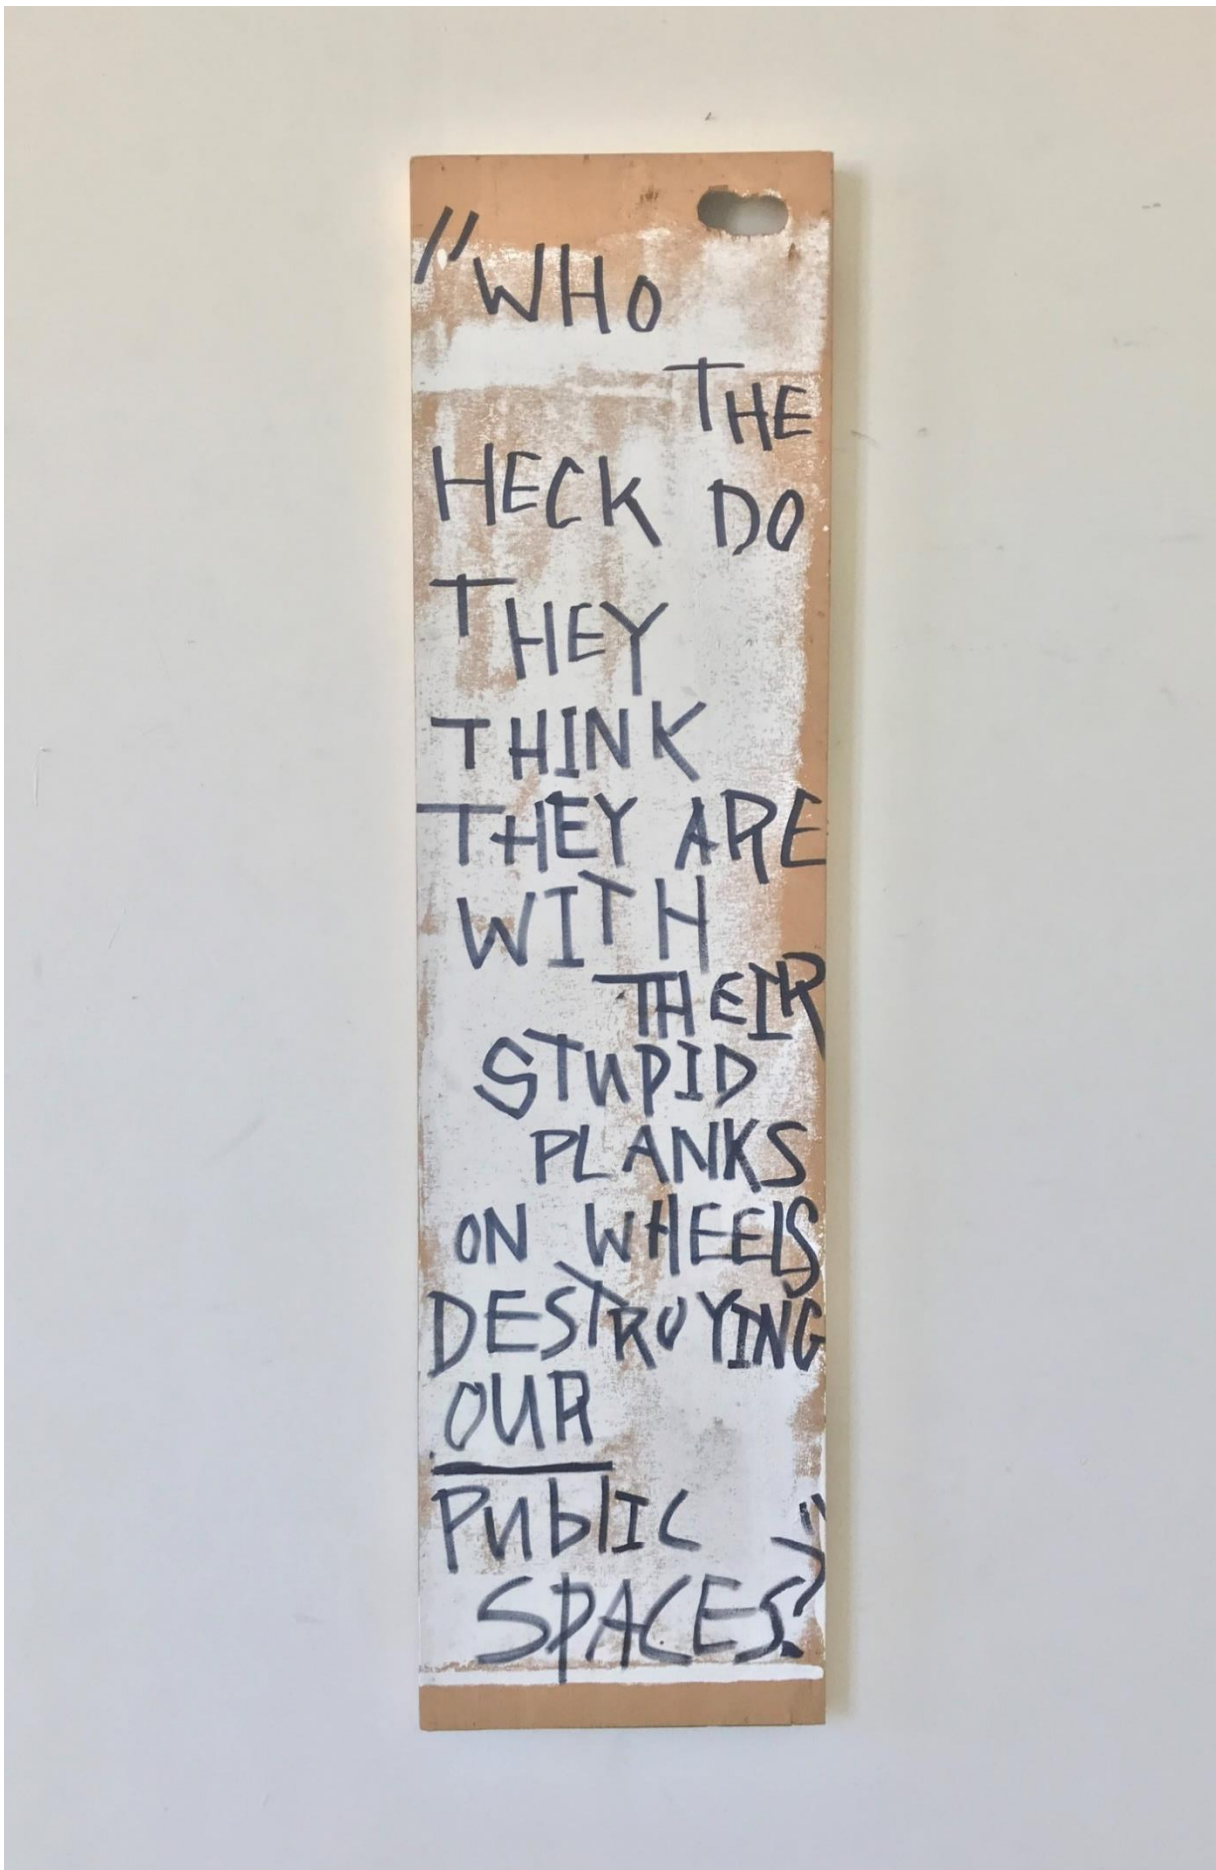 "WHO
THE
HECK DO
THEY
THINK
THEY ARE
WITH
THEIR
STUPID
PLANKS
ON WHEELS
DESTROYING
OUR
PUblIC
SPACES?"